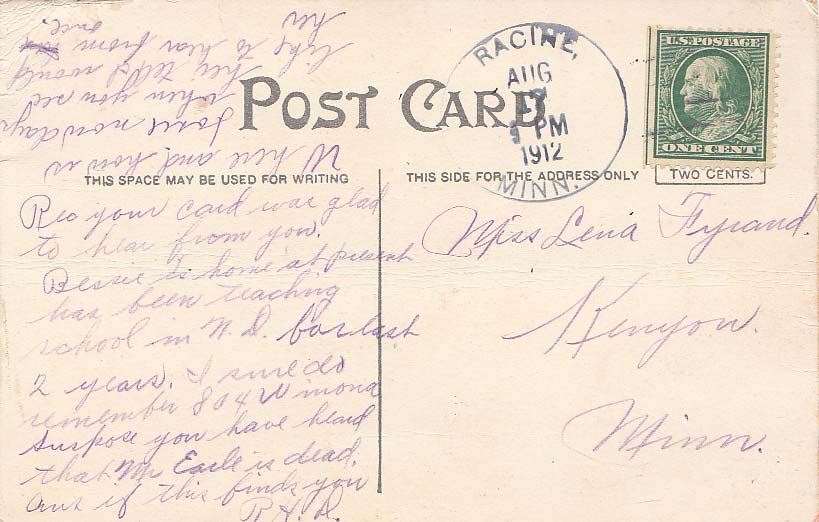 POST CARD
THIS SPACE MAY BE USED FOR WRITING
THIS SIDE FOR THE ADDRESS ONLY
TWO CENTS.
RACINE,
AUG
17
PM
1912
MINN.
U.S. POSTAGE
ONE CENT
Rec your card was glad
to hear from you.
Bessie is home at present
has been teaching
school in N. D. for last
2 years. I sure do
remember 804 Winona
suspose you have heard
that Mr Earle is dead.
Ans if this finds you
R. H. D.
Where and how is
Josie nowdays
when you see
her tell I would
like to hear from
her once.
Miss Lena Fyrand.
Kenyon.
Minn.